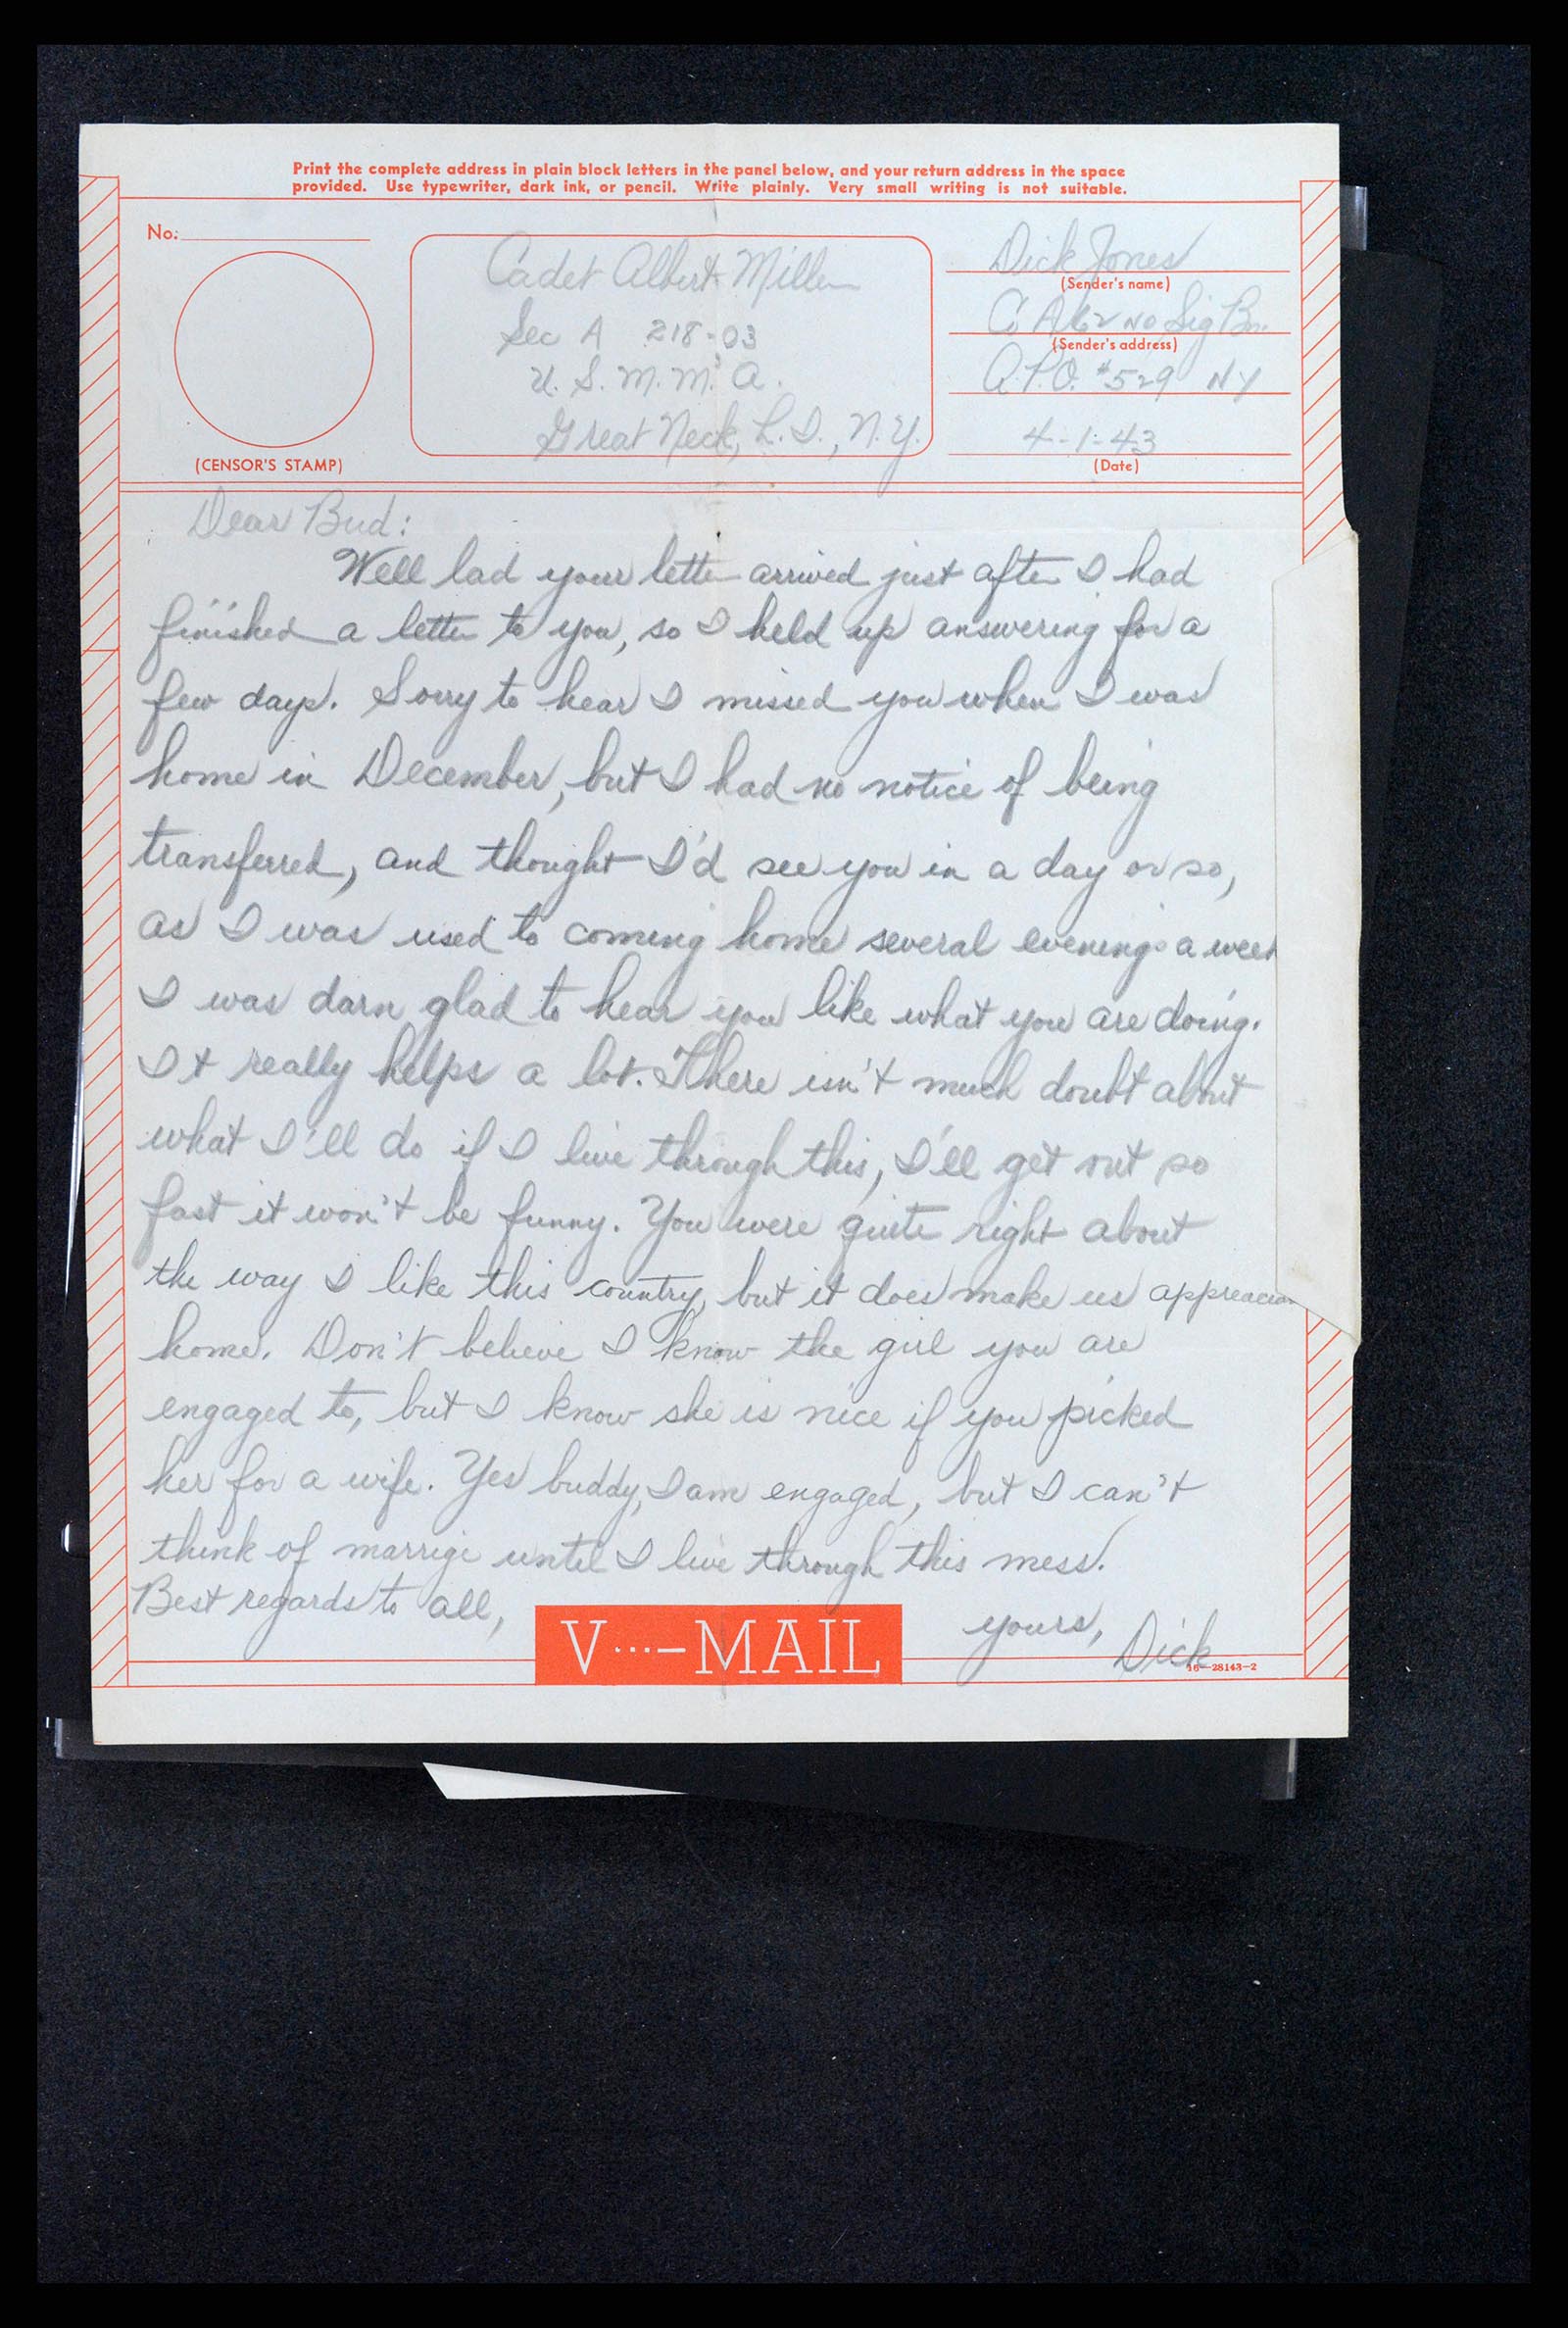 Print the complete address in plain block letters in the panel below, and your return address in the space
provided. Use typewriter, dark ink, or pencil. Write plainly. Very small writing is not suitable.
No.
(CENSOR'S STAMP)
Cadet Albert Miller
Sec A 218-03
U. S. M. M. A.
Great Neck, L. I., N. Y.
Dick Jones
(Sender's name)
Co A 62 ND Sig Bn.
(Sender's address)
A.P.O. #529 NY
4-1-43
(Date)
Dear Bud:
Well lad your letter arrived just after I had
finished a letter to you, so I held up answering for a
few days. Sorry to hear I missed you when I was
home in December, but I had no notice of being
transferred, and thought I'd see you in a day or so,
as I was used to coming home several evenings a week
I was darn glad to hear you like what you are doing.
It really helps a lot. There isn't much doubt about
what I'll do if I live through this, I'll get out so
fast it won't be funny. You were quite right about
the way I like this country, but it does make us
home. Don't believe I know the girl you are
engaged to, but I know she is nice if you picked
her for a wife. Yes buddy, I am engaged, but I can't
think of marrige until I live through this mess.
Best regards to all,
yours, Dick
V···—MAIL
16—28143-2